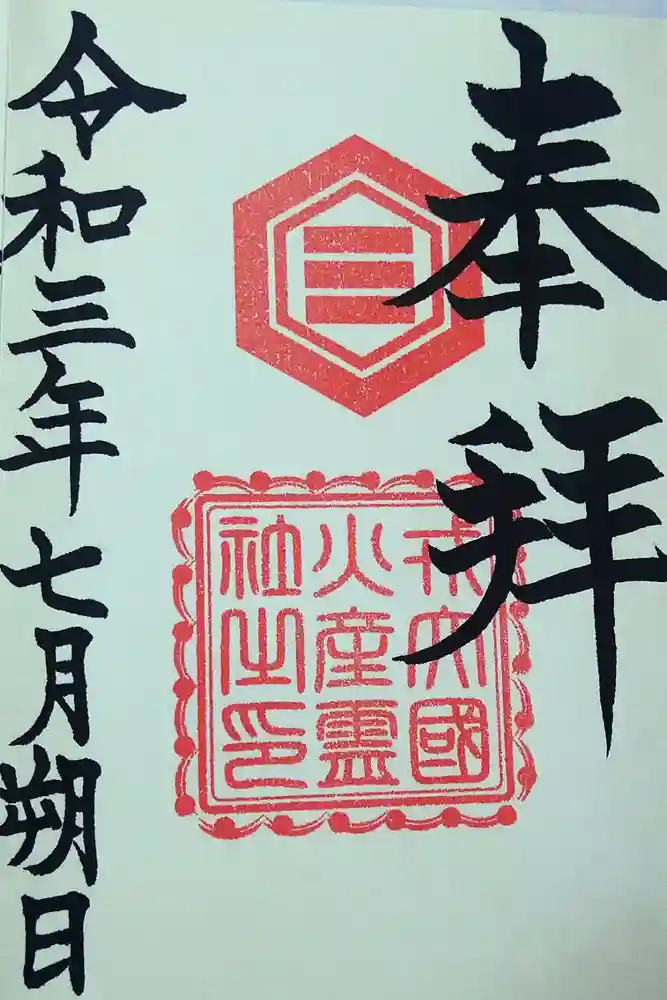 奉拝
戎大國
火産霊
社之印
令和三年七月朔日